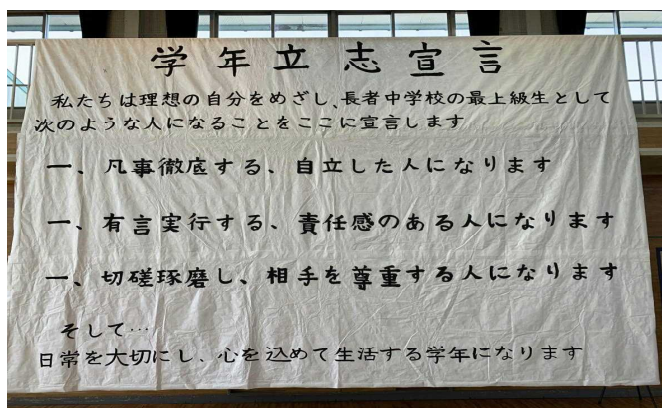 学年立志宣言
私たちは理想の自分をめざし、長者中学校の最上級生として
次のような人になることをここに宣言します
一、凡事徹底する、自立した人になります
一、有言実行する、責任感のある人になります
一、切磋琢磨し、相手を尊重する人になります
そして…
日常を大切にし、心を込めて生活する学年になります